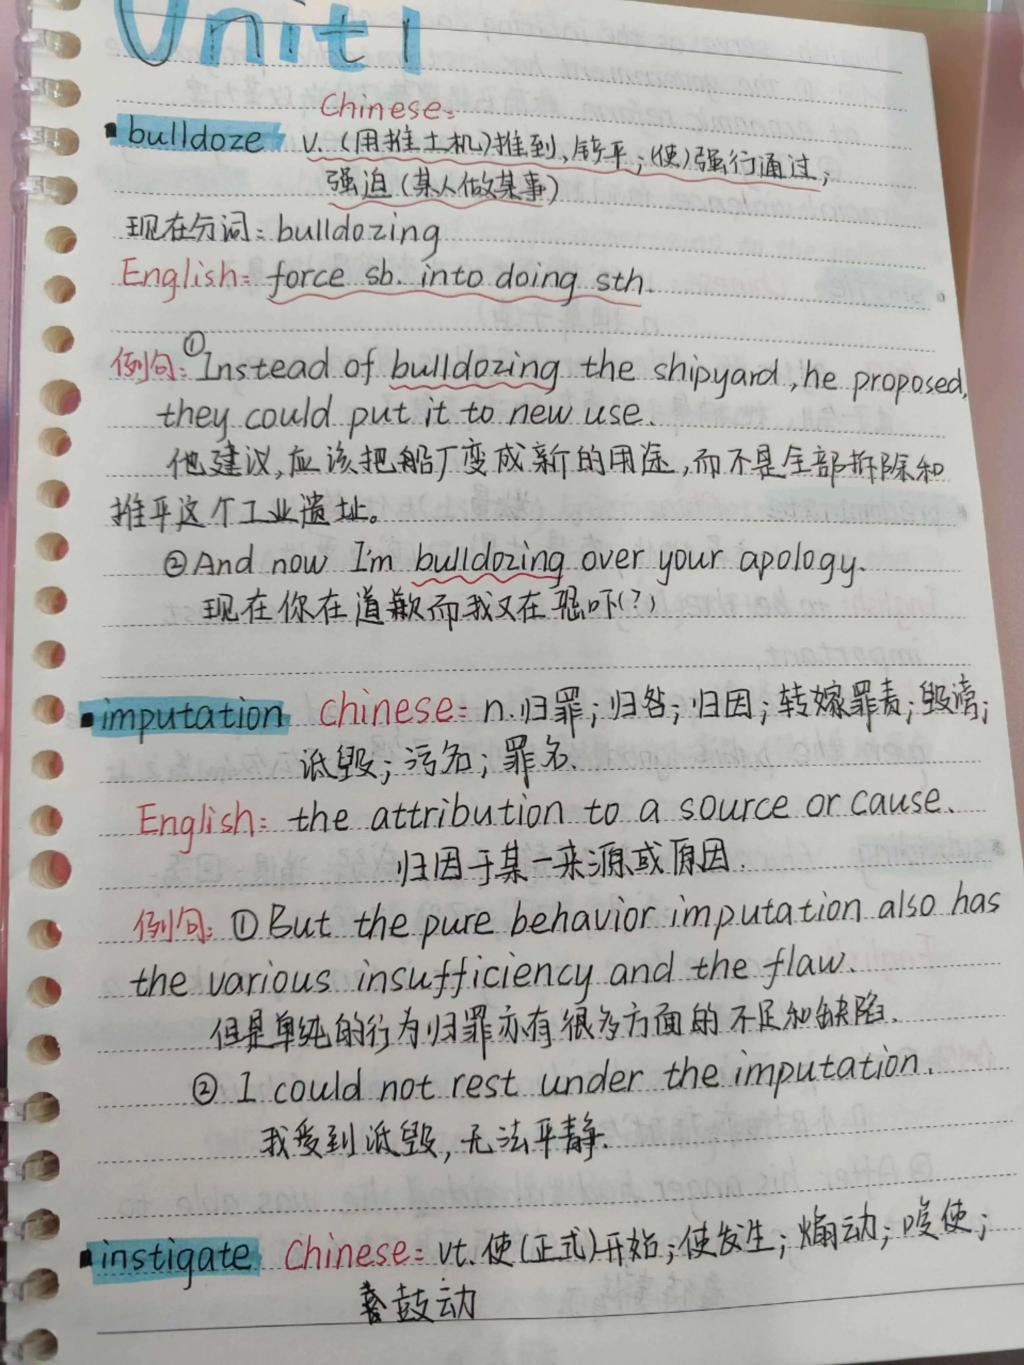 Unit1
Chinese:
bulldoze v.(用推土机)推到,铲平;(使)强行通过;
强迫(某人做某事)
现在分词:bulldozing
English: force sb. into doing sth.
例句:①Instead of bulldozing the shipyard, he proposed,
they could put it to new use.
他建议,应该把船厂变成新的用途,而不是全部拆除和
推平这个工业遗址。
②And now I'm bulldozing over your apology.
现在你在道歉而我又在恐吓(?)
imputation Chinese: n.归罪;归咎;归因;转嫁罪责;毁谤;
诋毁;污名;罪名.
English: the attribution to a source or cause.
归因于某一来源或原因.
例句:①But the pure behavior imputation also has
the various insufficiency and the flaw.
但是单纯的行为归罪亦有很多方面的不足和缺陷.
② I could not rest under the imputation.
我受到诋毁,无法平静.
instigate Chinese: vt.使(正式)开始;使发生;煽动;唆使;
鼓动